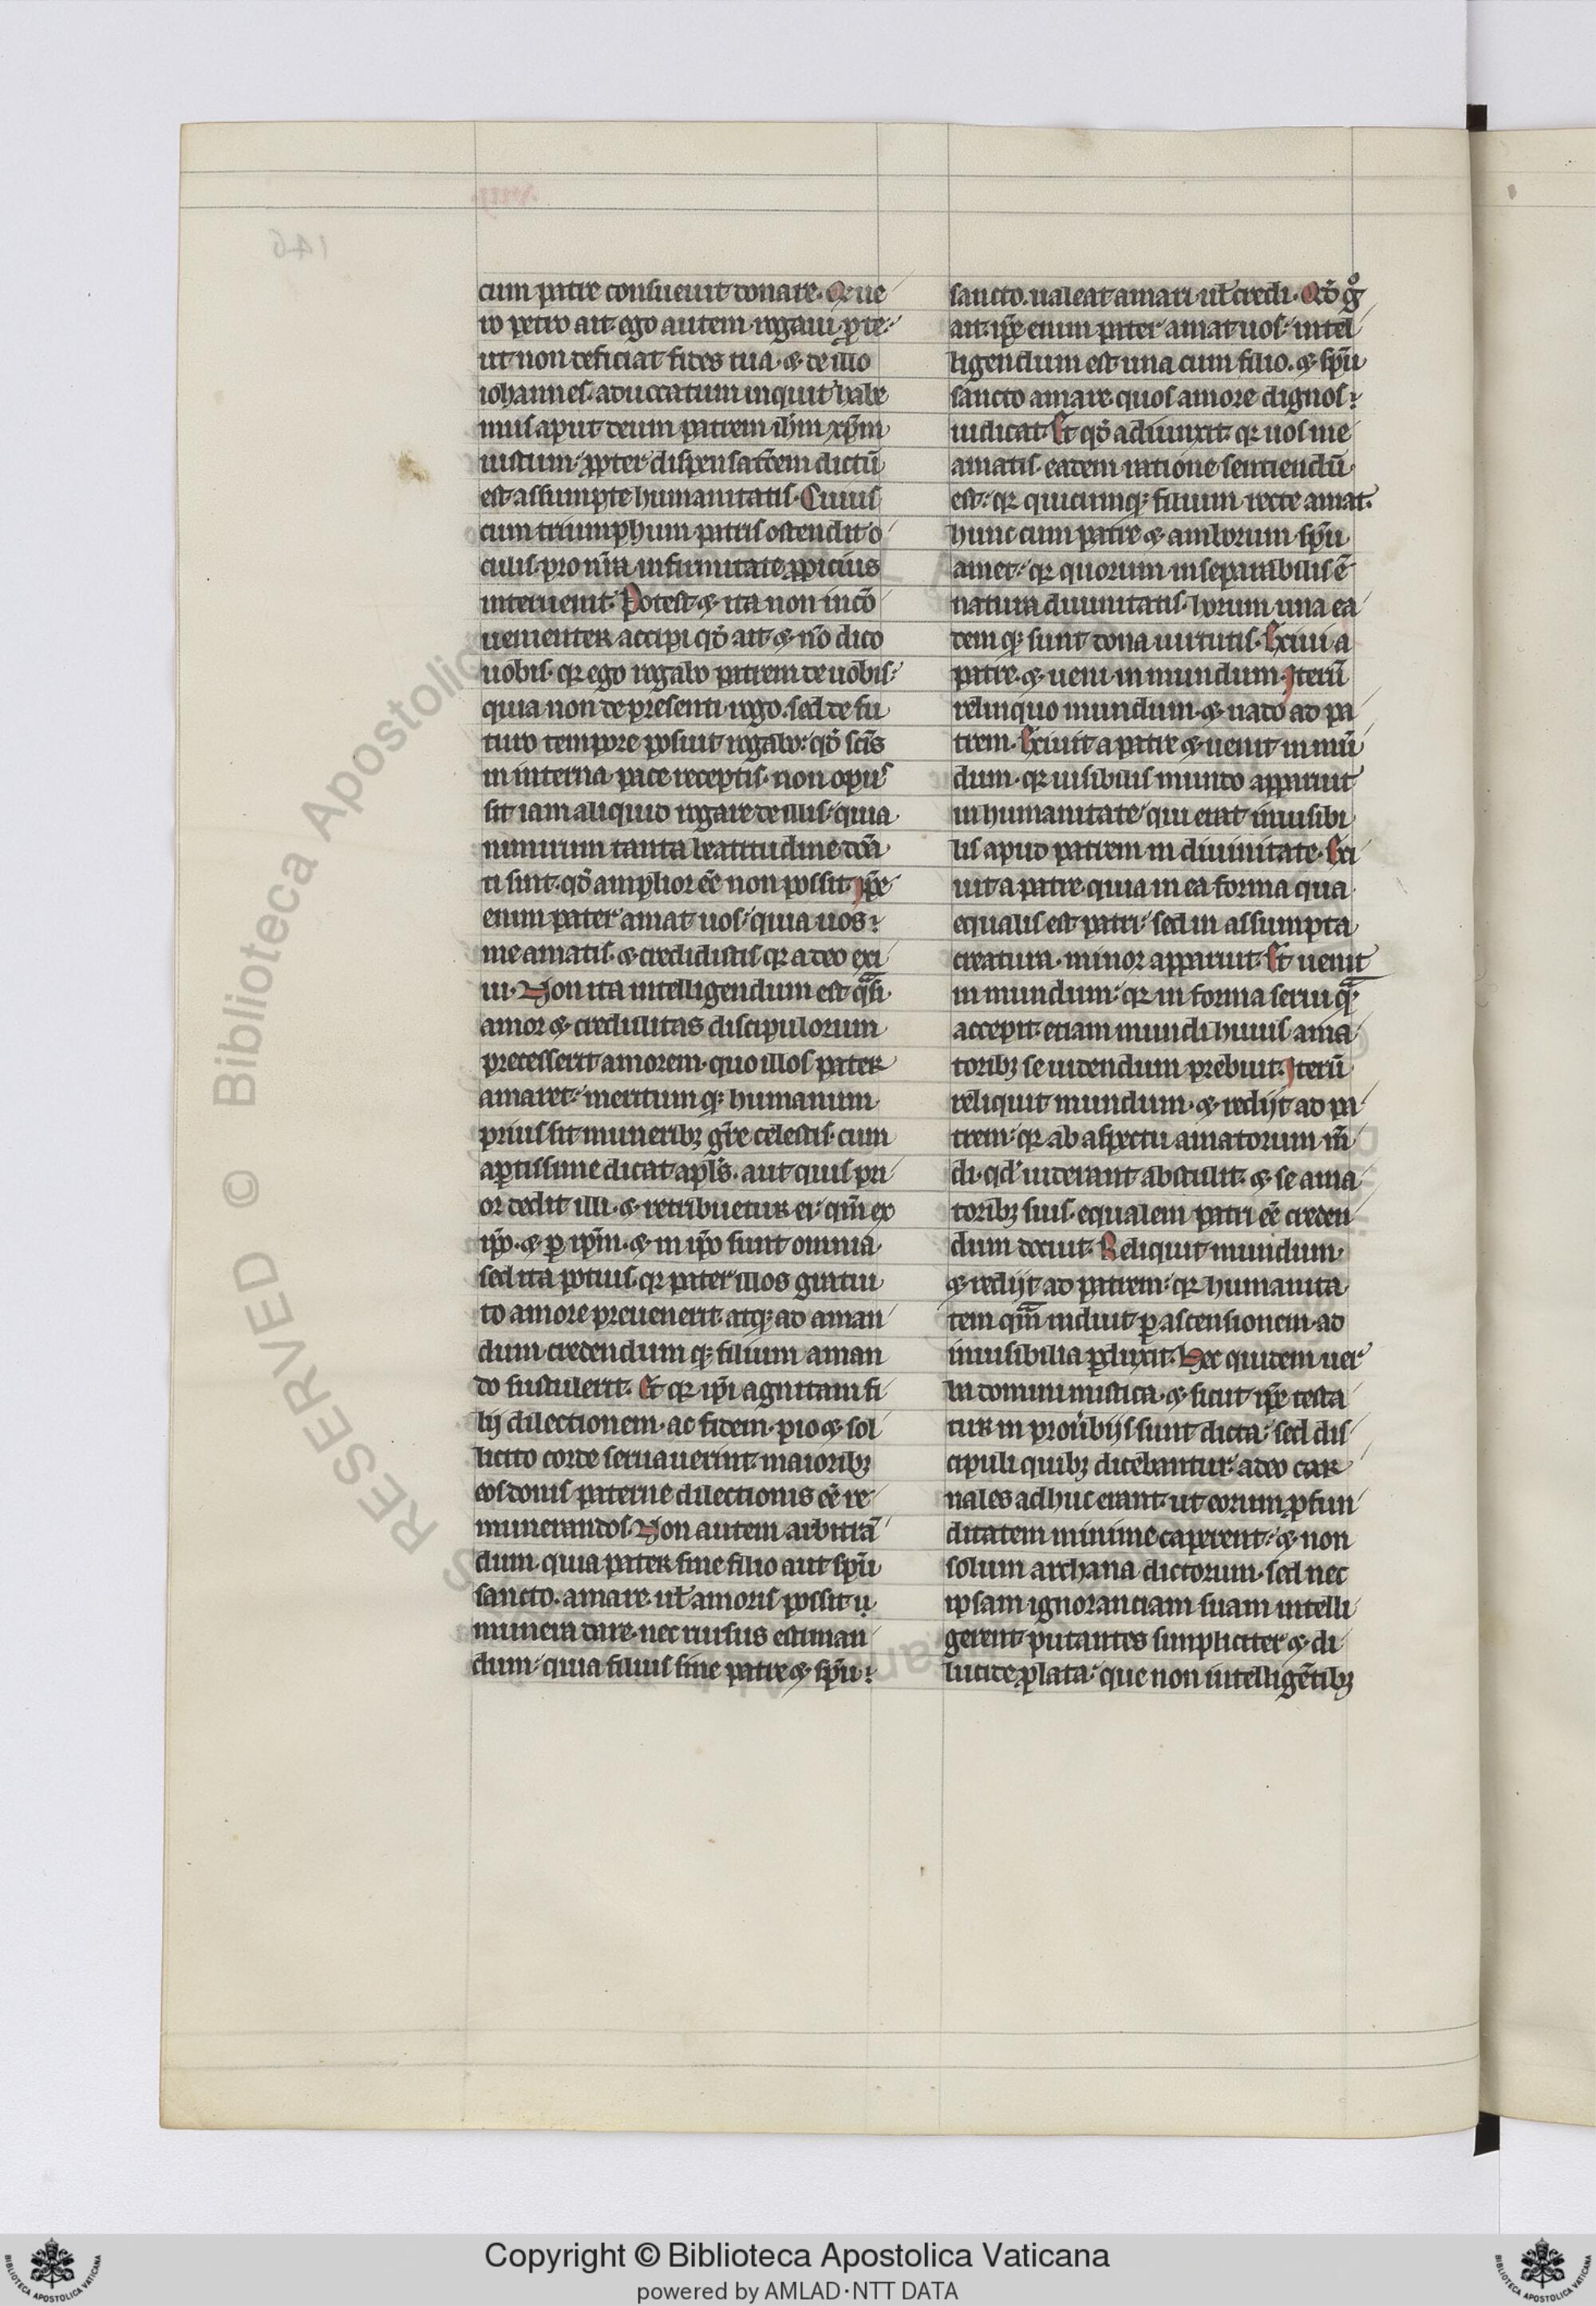 cum patre consueuit donare. Q ue
ro petro ait ego autem rogaui ꝓ te
ut non deficiat fides tua. & de illo
iohannes. aduocatum inquit habe
mus aput deum patrem ih̄m xp̄m
iustum. ꝓpter dispensatōem dictū
est assumpte humanitatis. Cuius
cum triumphum patris ostendit o
culis. pro nr̄a infirmitate ꝓpicius
interuenit. Potest & ita non incō
uenienter accipi qd̄ ait & nō dico
uobis. qr ego rogabo patrem de uobis
quia non de presenti rogo. sed de fu
turo tempore posuit rogabo. qd̄ scīs
in interna pace receptis. non opus
sit iam aliquid rogare de illis. quia
nimirum tanta beatitudine dōn
ti sint. qd̄ amplior eē non possit. Ip̄e
enim pater amat uos. quia uos
me amatis. & credidistis qr a deo exi
ui. Non ita intelligendum est q̄si
amor & credulitas discipulorum
precesserit amorem. quo illos pater
amaret. meritum qꝫ humanum
prius sit muneribꝫ gr̄e celestis. cum
aptissime dicat apl̄s. aut quis pri
or dedit illi. & retribuetur ei. qm̄ ex
ip̄o. & ꝑ ip̄m. & in ip̄o sunt omnia.
sed ita potius. qr pater illos gratui
to amore preuenerit. atqꝫ ad aman
dum credendum qꝫ filium aman
do sustulerit. Et qr ip̄i agnitam fi
lij dilectionem. ac fidem. pio & sol
licito corde seruauerint. maioribꝫ
eos donis paterne dilectionis eē re
munerandos. Non autem arbitrā
dum. quia pater sine filio aut sp̄u
sancto. amare. ul̄ amoris possit
munera dare. nec rursus estiman
dum. quia filius sine patre & sp̄u
sancto. ualeat amari ul̄ credi. Qd̄ gͦ
ait. ip̄e enim pater amat uos. intel
ligendum est una cum filio. & sp̄u
sancto amare. quos amore dignos
iudicat. Et qd̄ adiunxit. qr uos me
amatis. eadem ratione sentiendū
est. qr quicumqꝫ filium recte amat.
hunc cum patre & amborum sp̄u
amet. qr quorum inseparabilis ē
natura diuinitatis. horum una ea
dem qꝫ sunt dona uirtutis. Exiui a
patre. & ueni in mundum. Iterū
relinquo mundum. & uado ad pa
trem. Exiuit a patre & uenit in mū
dum. qr uisibilis mundo apparuit
in humanitate. qui erat inuisibi
lis apud patrem in diuinitate. Exi
uit a patre. quia in ea forma qua
equalis est patri. sed in assumpta
creatura. minor apparuit. Et uenit
in mundum. qr in forma serui q̄
accepit. etiam mundi huius ama
toribꝫ se uidendum prebuit. Iterū
reliquit mundum. & redijt ad pa
trem. qr ab aspectu amatorum m̄
di. qd̄ uiderant abstulit. & se ama
toribꝫ suis. equalem patri eē creden
dum docuit. Reliquit mundum
& redijt ad patrem. qr humanita
tem qm̄ induit ꝑ ascensionem. ad
inuisibilia ꝑduxit. Hec quidem uer
ba domini mistica. & sicut ip̄e testa
tur in prouerbijs sunt dicta. sed dis
cipuli quibꝫ dicebantur. adeo car
nales adhuc erant. ut eorum ꝓfun
ditatem minime caperent. & non
solum archana dictorum. sed nec
ipsam ignoranciam suam intelli
gerent putantes simpliciter & di
lucide ꝓlata. que non intelligētibꝫ
146
© Biblioteca Apostolica
RESERVED
Copyright © Biblioteca Apostolica Vaticana
powered by AMLAD·NTT DATA